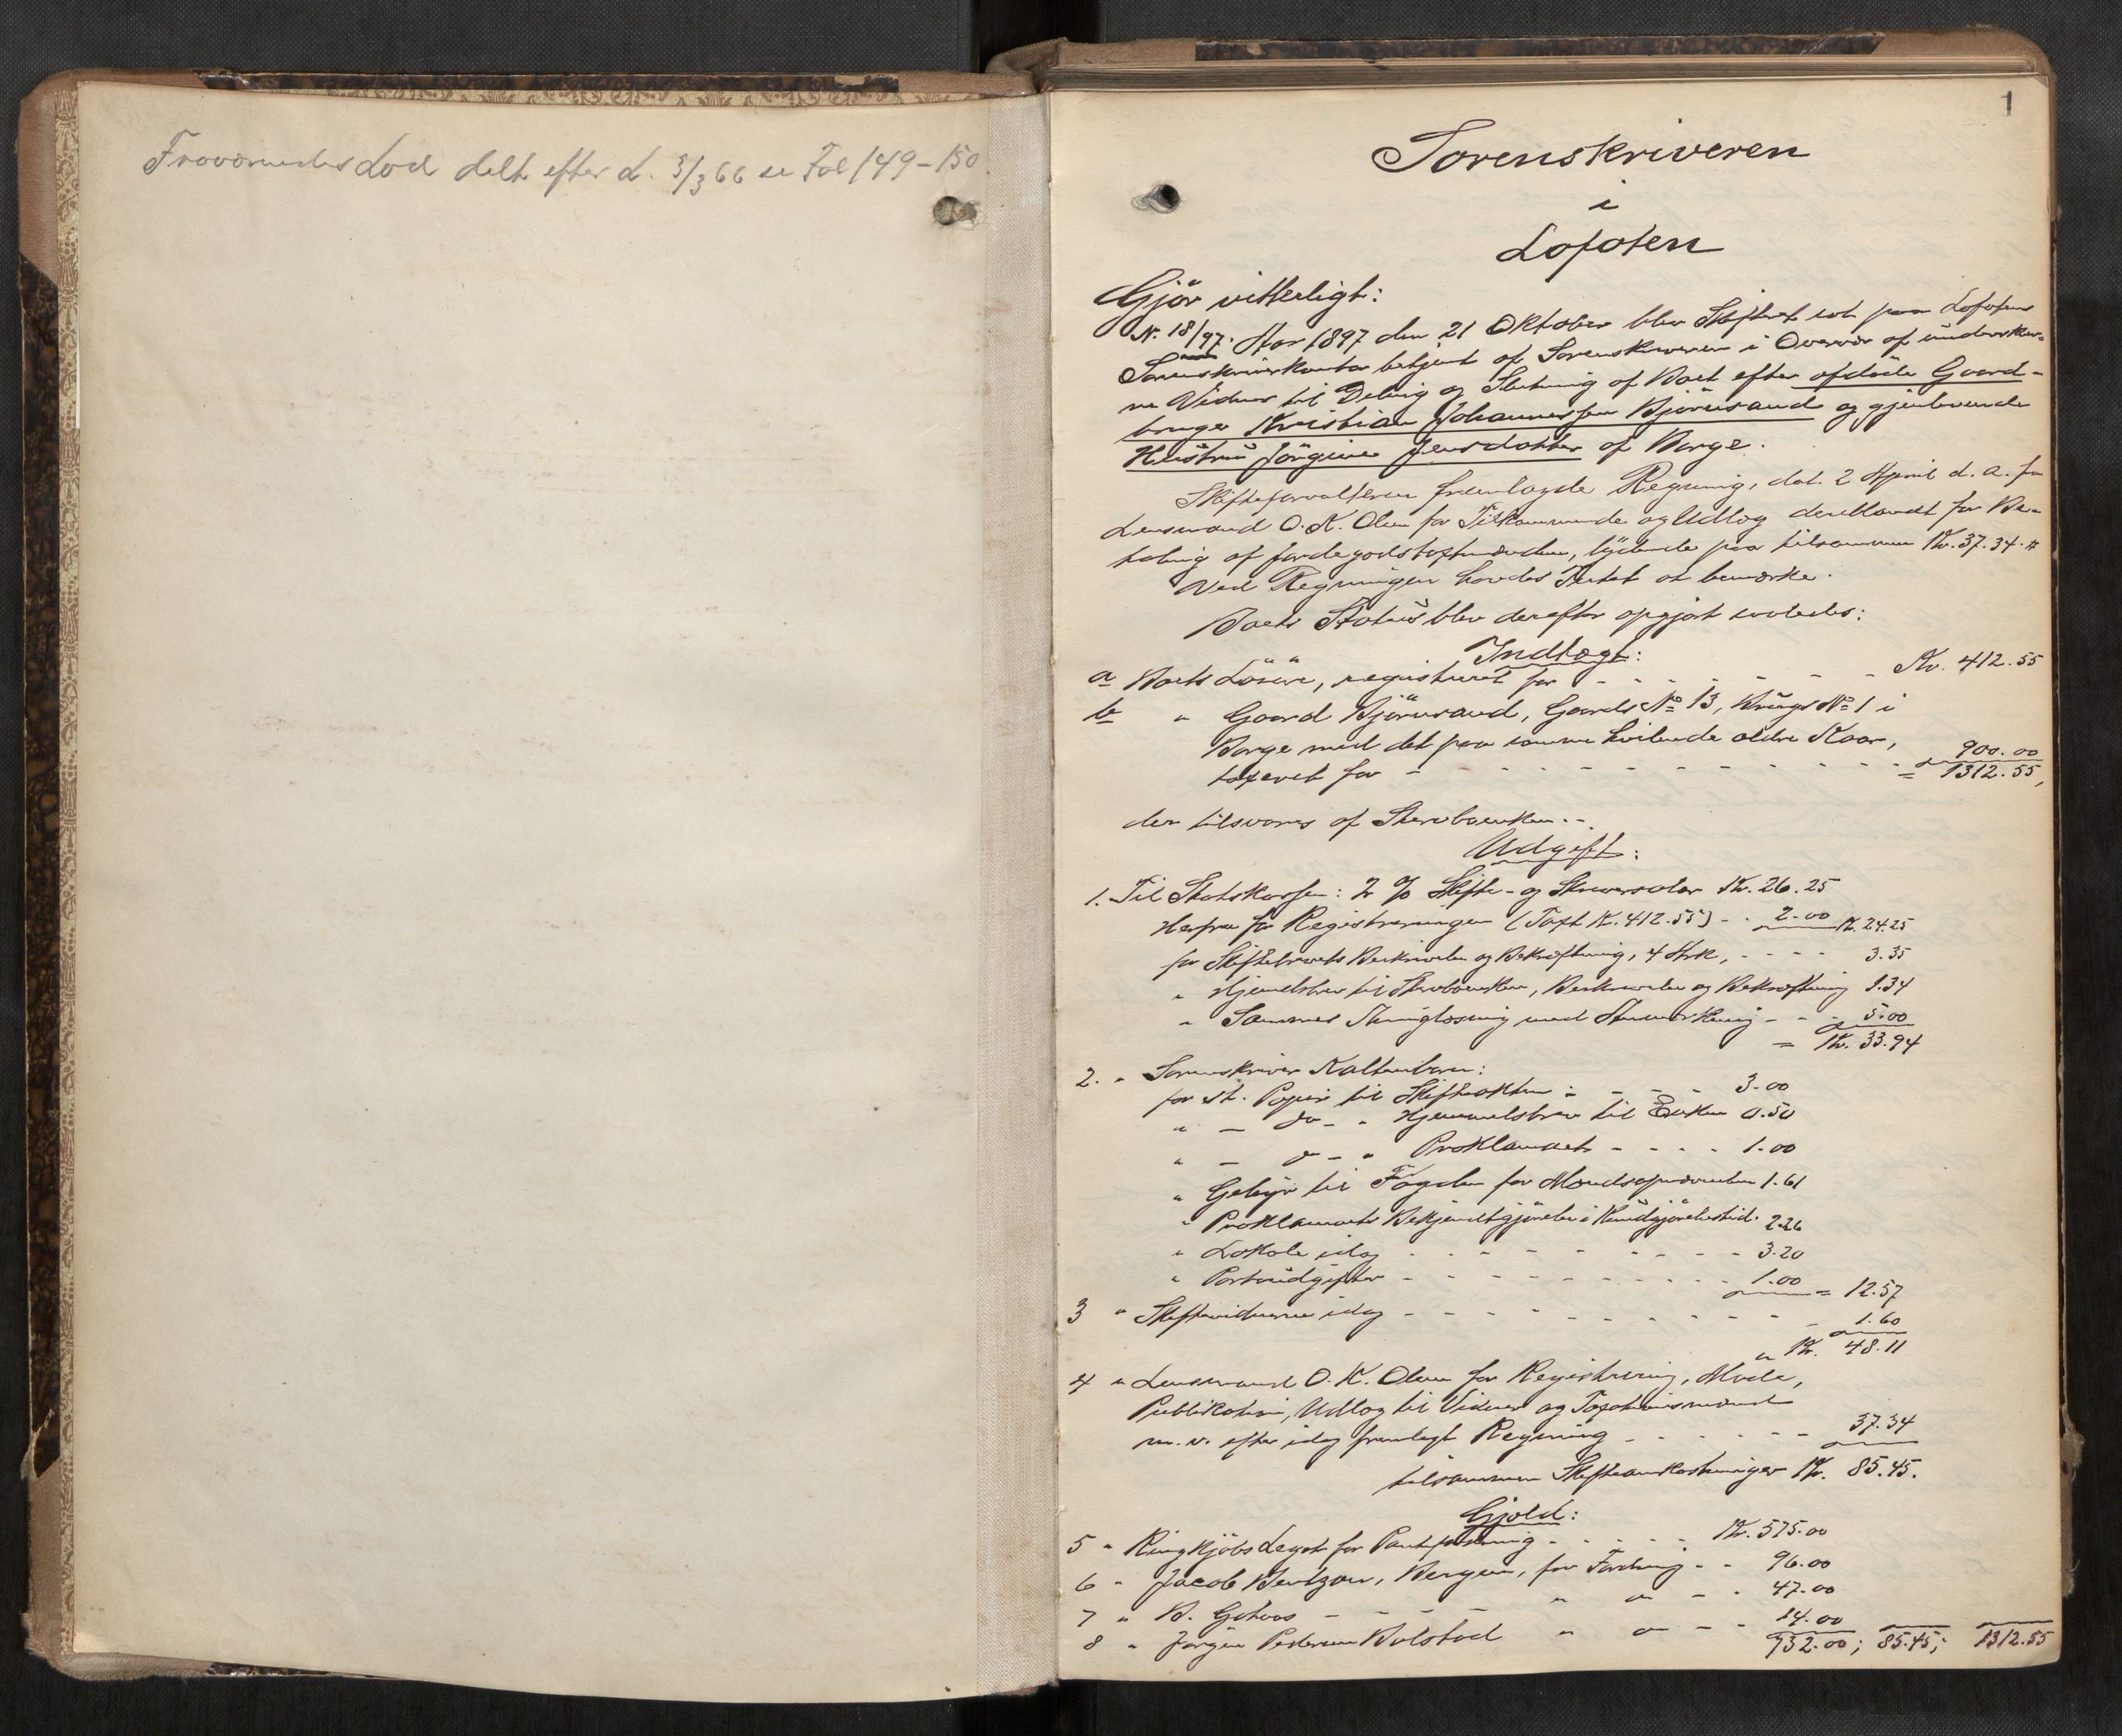 Fraværendes Lod delt efter L. 3/3 66 se Fol 149-150
1
Sorenskriveren
i
Lofoten
Gjør vitterligt:
N. 18/97. Aar 1897 den 21 Oktober blev Skifteret sat paa Lofotens
Sorenskriverkontor betjent af Sorenskriveren i Overvær af underskrev-
ne Vidner til Deling og Slutning af Boet efter afdøde Gaard-
bruger Kristian Johannessen Bjørnsand og gjenlevende
Hustru Jørgine Jensdatter af Borge.
Skifteforvalteren fremlagde Regning, dat. 2 April d. A. fra
Lensmand O. K. Olsen for Tilkommende og Udlæg deriblandt for Be-
taling af jordegodstaxtmændene, lydende paa tilsammen Kr. 37.34.
Ved Regningen havdes Intet at bemærke.
Boets Status blev derefter opgjort saaledes:
Indtægt:
a Boets Løsøre, registreret for - - - - - - - Kr. 412.55
b " Gaard Bjørnsand, Gaards No 13, Brugs No 1 i
Borge med det paa samme hvilende ældre Kaar,
taxeret for - - - - - - - - - - - 900.00
= 1312.55,
der tilsvares af Stervboenken. -
Udgift:
1. Til Statskassen: 2 % Skifte- og Skriversalær Kr. 26.25
Herfra for Registreringen (Taxt K. 412.55) - - 2.00 K. 24.25
for Skiftebrevets Beskrivelse og Bekræftning, 4 Ark, - - - - 3.35
" Hjemdelsbrev til Stervboenken, Beskrivelse og Bekræftning 1.34
" Sammes Thinglæsning med Anmærkning - - - 5.00
= Kr. 33.94
2. " Sorenskriver Kaltenborn:
for st. Papir til Skifteakten - - - - 3.00
" - do - " Hjemmelsbrev til Enken 0.50
" - do - " Proklamaet - - - - 1.00
" Gebyr til Fogden for Mændsopnævnelsen 1.61
" Proklamaets Bekjendtgjørelse i Kundgjørelsestid. 2.26
" Lokale idag - - - - - - - - - 3.20
" Portoudgifter - - - - - - - - - 1.00 = 12.57
3 " Skiftevidnerne idag - - - - - - - - - 1.60
" Kr. 48.11
4 " Lensmand O. K. Olsen for Registrering, Møde,
Publikation, Udlæg til Vidner og Taxationsmænd
m. v. efter idag fremlagt Regning - - - - - - 37.34
tilsammen Skifteomkostninger Kr. 85.45.
Gjæld:
5 " Ringkjøbs Legat for Pantfordring - - - - - Kr. 575.00
6 " Jacob Bentzon, Bergen, for Fordring - - 96.00
7 " B. Gotaas - - - - " " - - 47.00
8 " Jørgen Pedersen Bolstad " " - - 14.00
732.00; 85.45; 1312.55